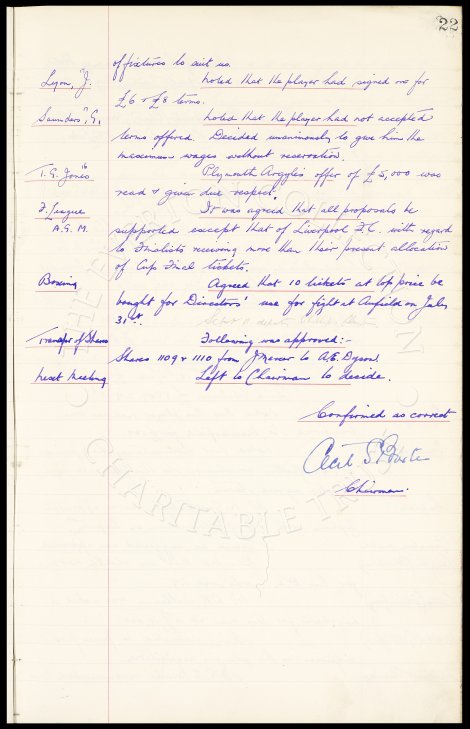 22
of fixtures to suit us.
Lyon, "J." Noted that the player had signed on for
£6 & £8 terms.
Saunders, "G." Noted that the player had not accepted
terms offered. Decided unanimously to give him the
maximum wages without reservation.
T. G. Jones" Plymouth Argyle's offer of £5,000 was
read & given due respect.
F. League It was agreed that all proposals be
A.G.M. supported except that of Liverpool F.C. with regard
to Finalists receiving more than their present allocation
of Cup Final tickets.
Boxing Agreed that 10 tickets at top price be
bought for Directors' use for fight at Anfield on July
31st.
Transfer of Shares Following was approved:-
Shares 1109 & 1110 from J. Mercer to A.E. Dyson.
Next Meeting Left to Chairman to decide.
Confirmed as correct
Cecil S. Baxter
Chairman.
THE EVERTON
CHARITABLE TRUST